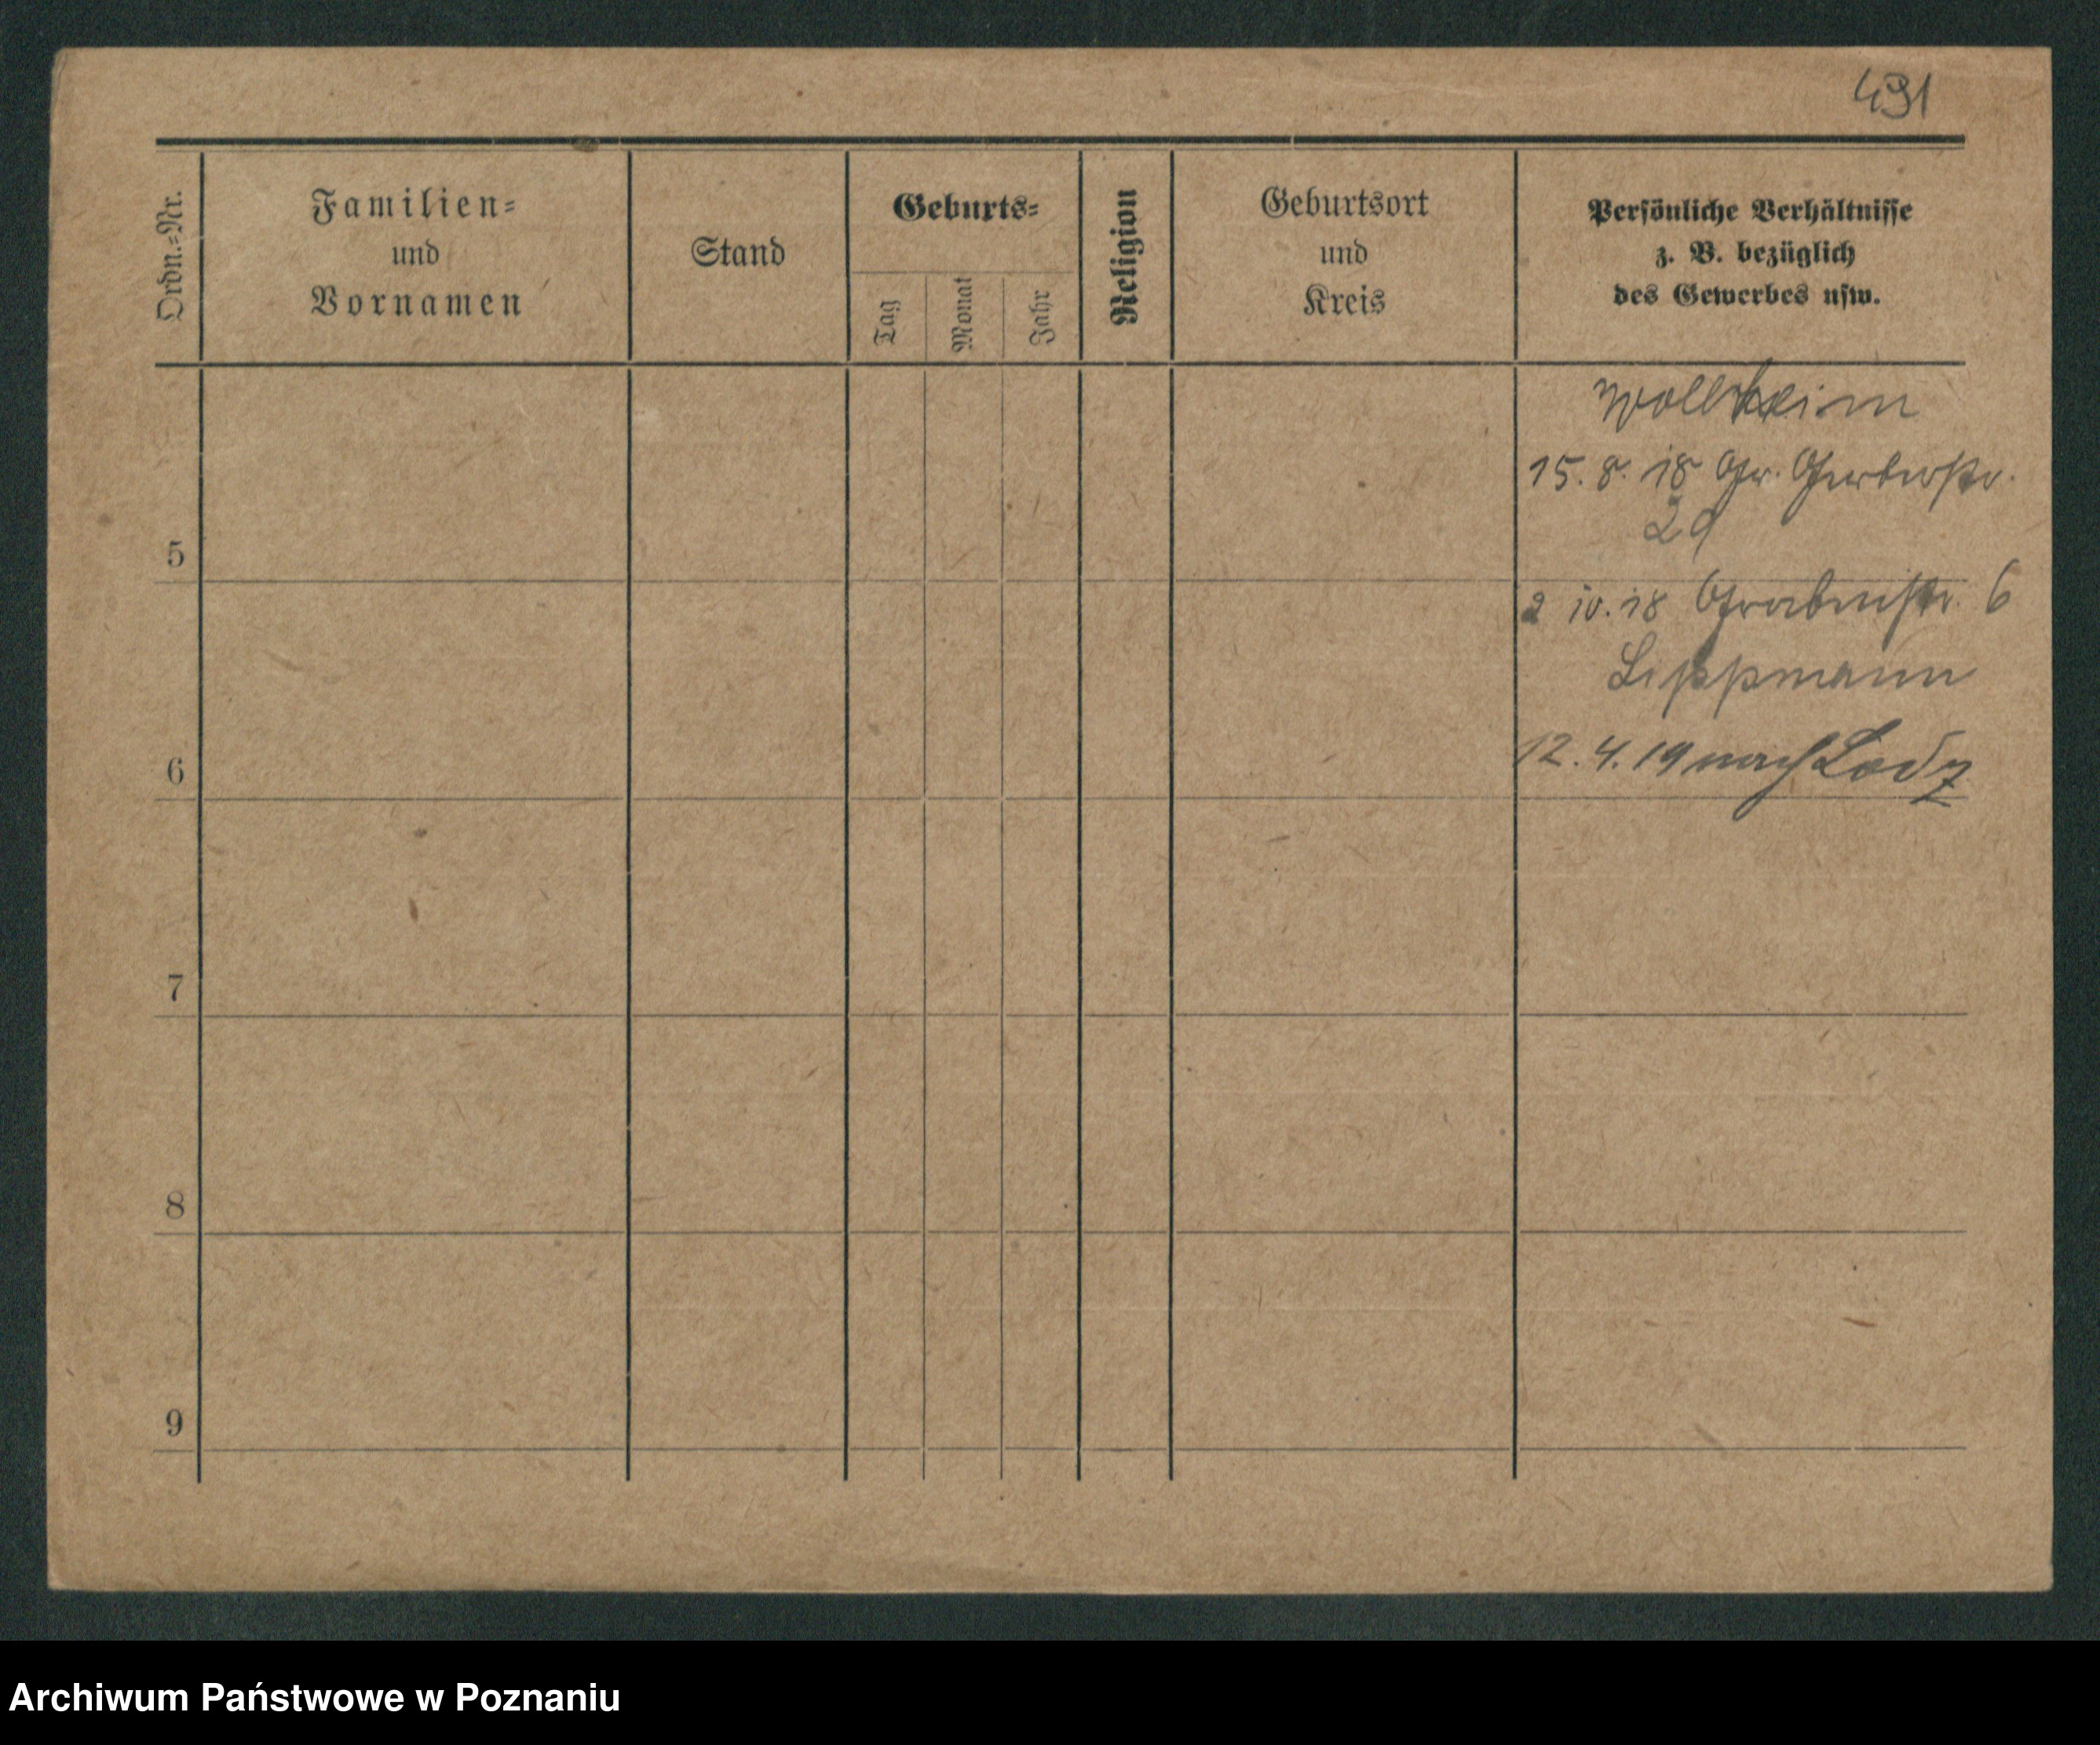 491
Ordn.-Nr.
Familien-
und
Vornamen
Stand
Geburts-
Tag
Monat
Jahr
Religion
Geburtsort
und
Kreis
Persönliche Verhältnisse
z. B. bezüglich
des Gewerbes usw.
Wollheim
15. 8. 18 Gr. Gerberstr.
29
5
2 10. 18 Grabenstr. 6
Lippmann
12. 4. 19 nach Lodz
6
7
8
9
Archiwum Państwowe w Poznaniu